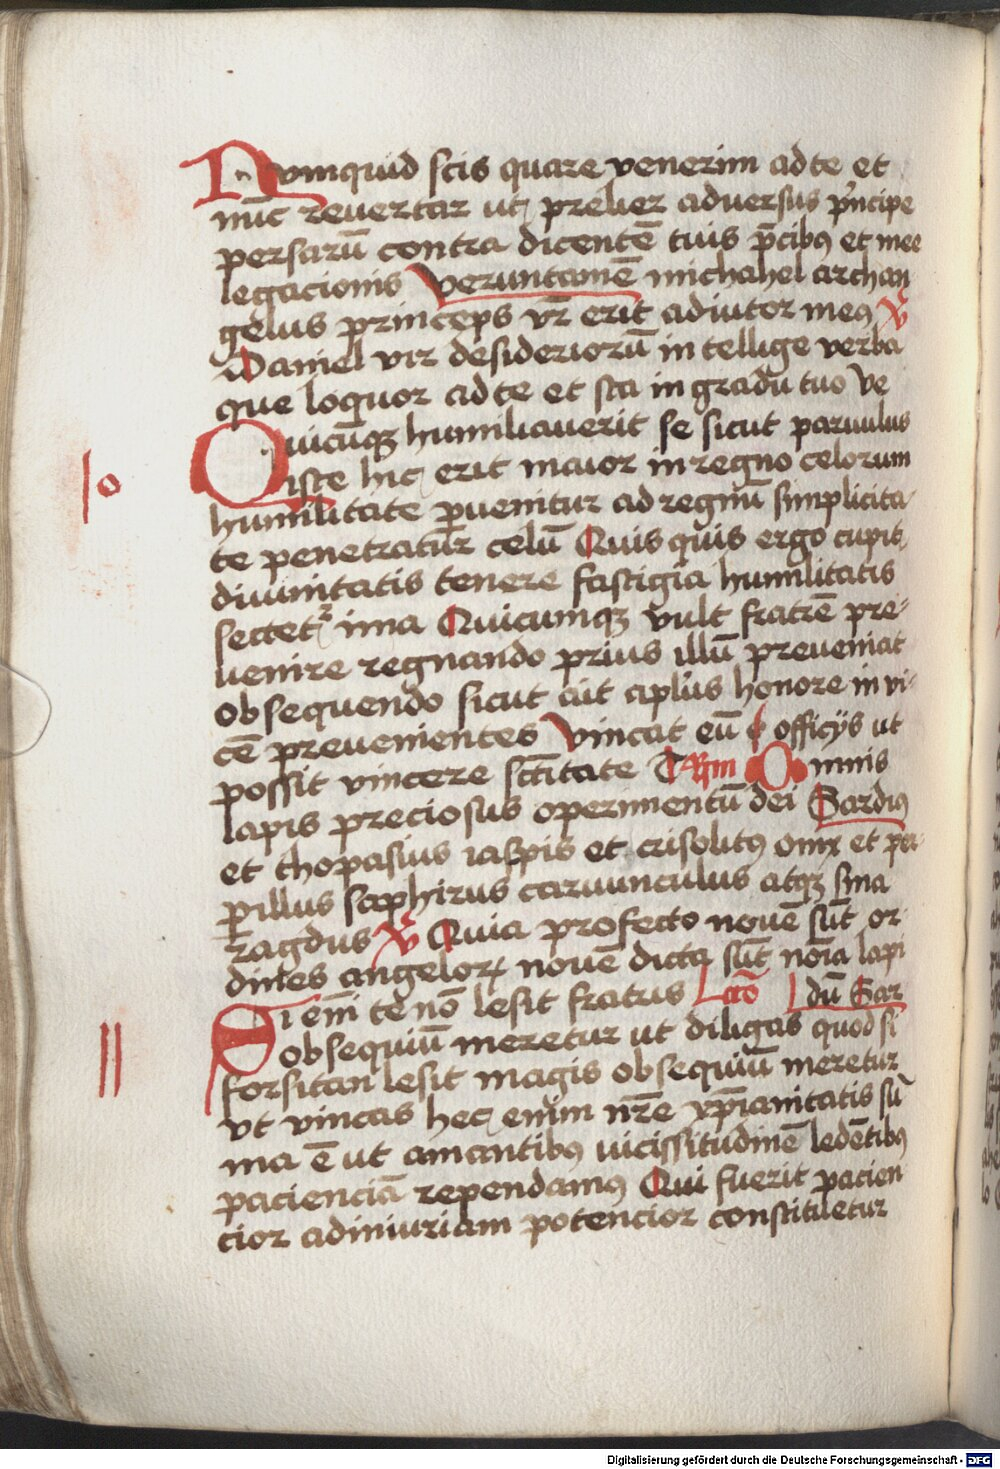 Numquid scis quare venerim ad te et
nūc revertar ut prelier adversus pͥncipe
persarū contra dicentē tuis p̄cibꝰ et mee
legacionis Veruntamē michahel archan
gelus princeps vr̄ erit adiutor meꝰ V̄
Daniel vir desideriorū in tellige verba
que loquor ad te et sta in gradu tuo Ve
Quicūqꝫ humiliauerit se sicut paruulus
iste hic erit maior in regno celorum
10
humilitate ꝑuenitur ad regnū simplicita-
te penetratur celū Quis quis ergo cupit
divinitatis tenere fastigia humilitatis
sectetꝛ ima Quicumqꝫ vult fratrē pre-
uenire regnando prius illū preueniat
obsequendo sicut ait aplus honore in vi-
cē preuenientes Vincat eū officijs ut
possit vincere sctītate Omnis
lapis preciosus operimentū dei Sardiꝰ
et thopasius iaspis et crisolitꝰ onix et
ꝑillus saphirus carvunculus atqꝫ sma
ragdus V̄ Quia profecto nouē sūt or
dines angeloꝝ nouē dicta sūt noīa lapi
Si em̄ te nō lesit fratris Lcō dū Sar
obsequiū meretur ut diligas quod si
11
forsitan lesit magis obsequiū meretur
vt vincas hec enim nr̄e xp̄ianitatis sū
ma ē ut amantibꝰ uicissitudinē ledētibꝰ
pacienciā rependamꝰ Qui fuerit pacien
cior ad iniuriam potencior constituetur
Digitalisierung gefördert durch die Deutsche Forschungsgemeinschaft - DFG